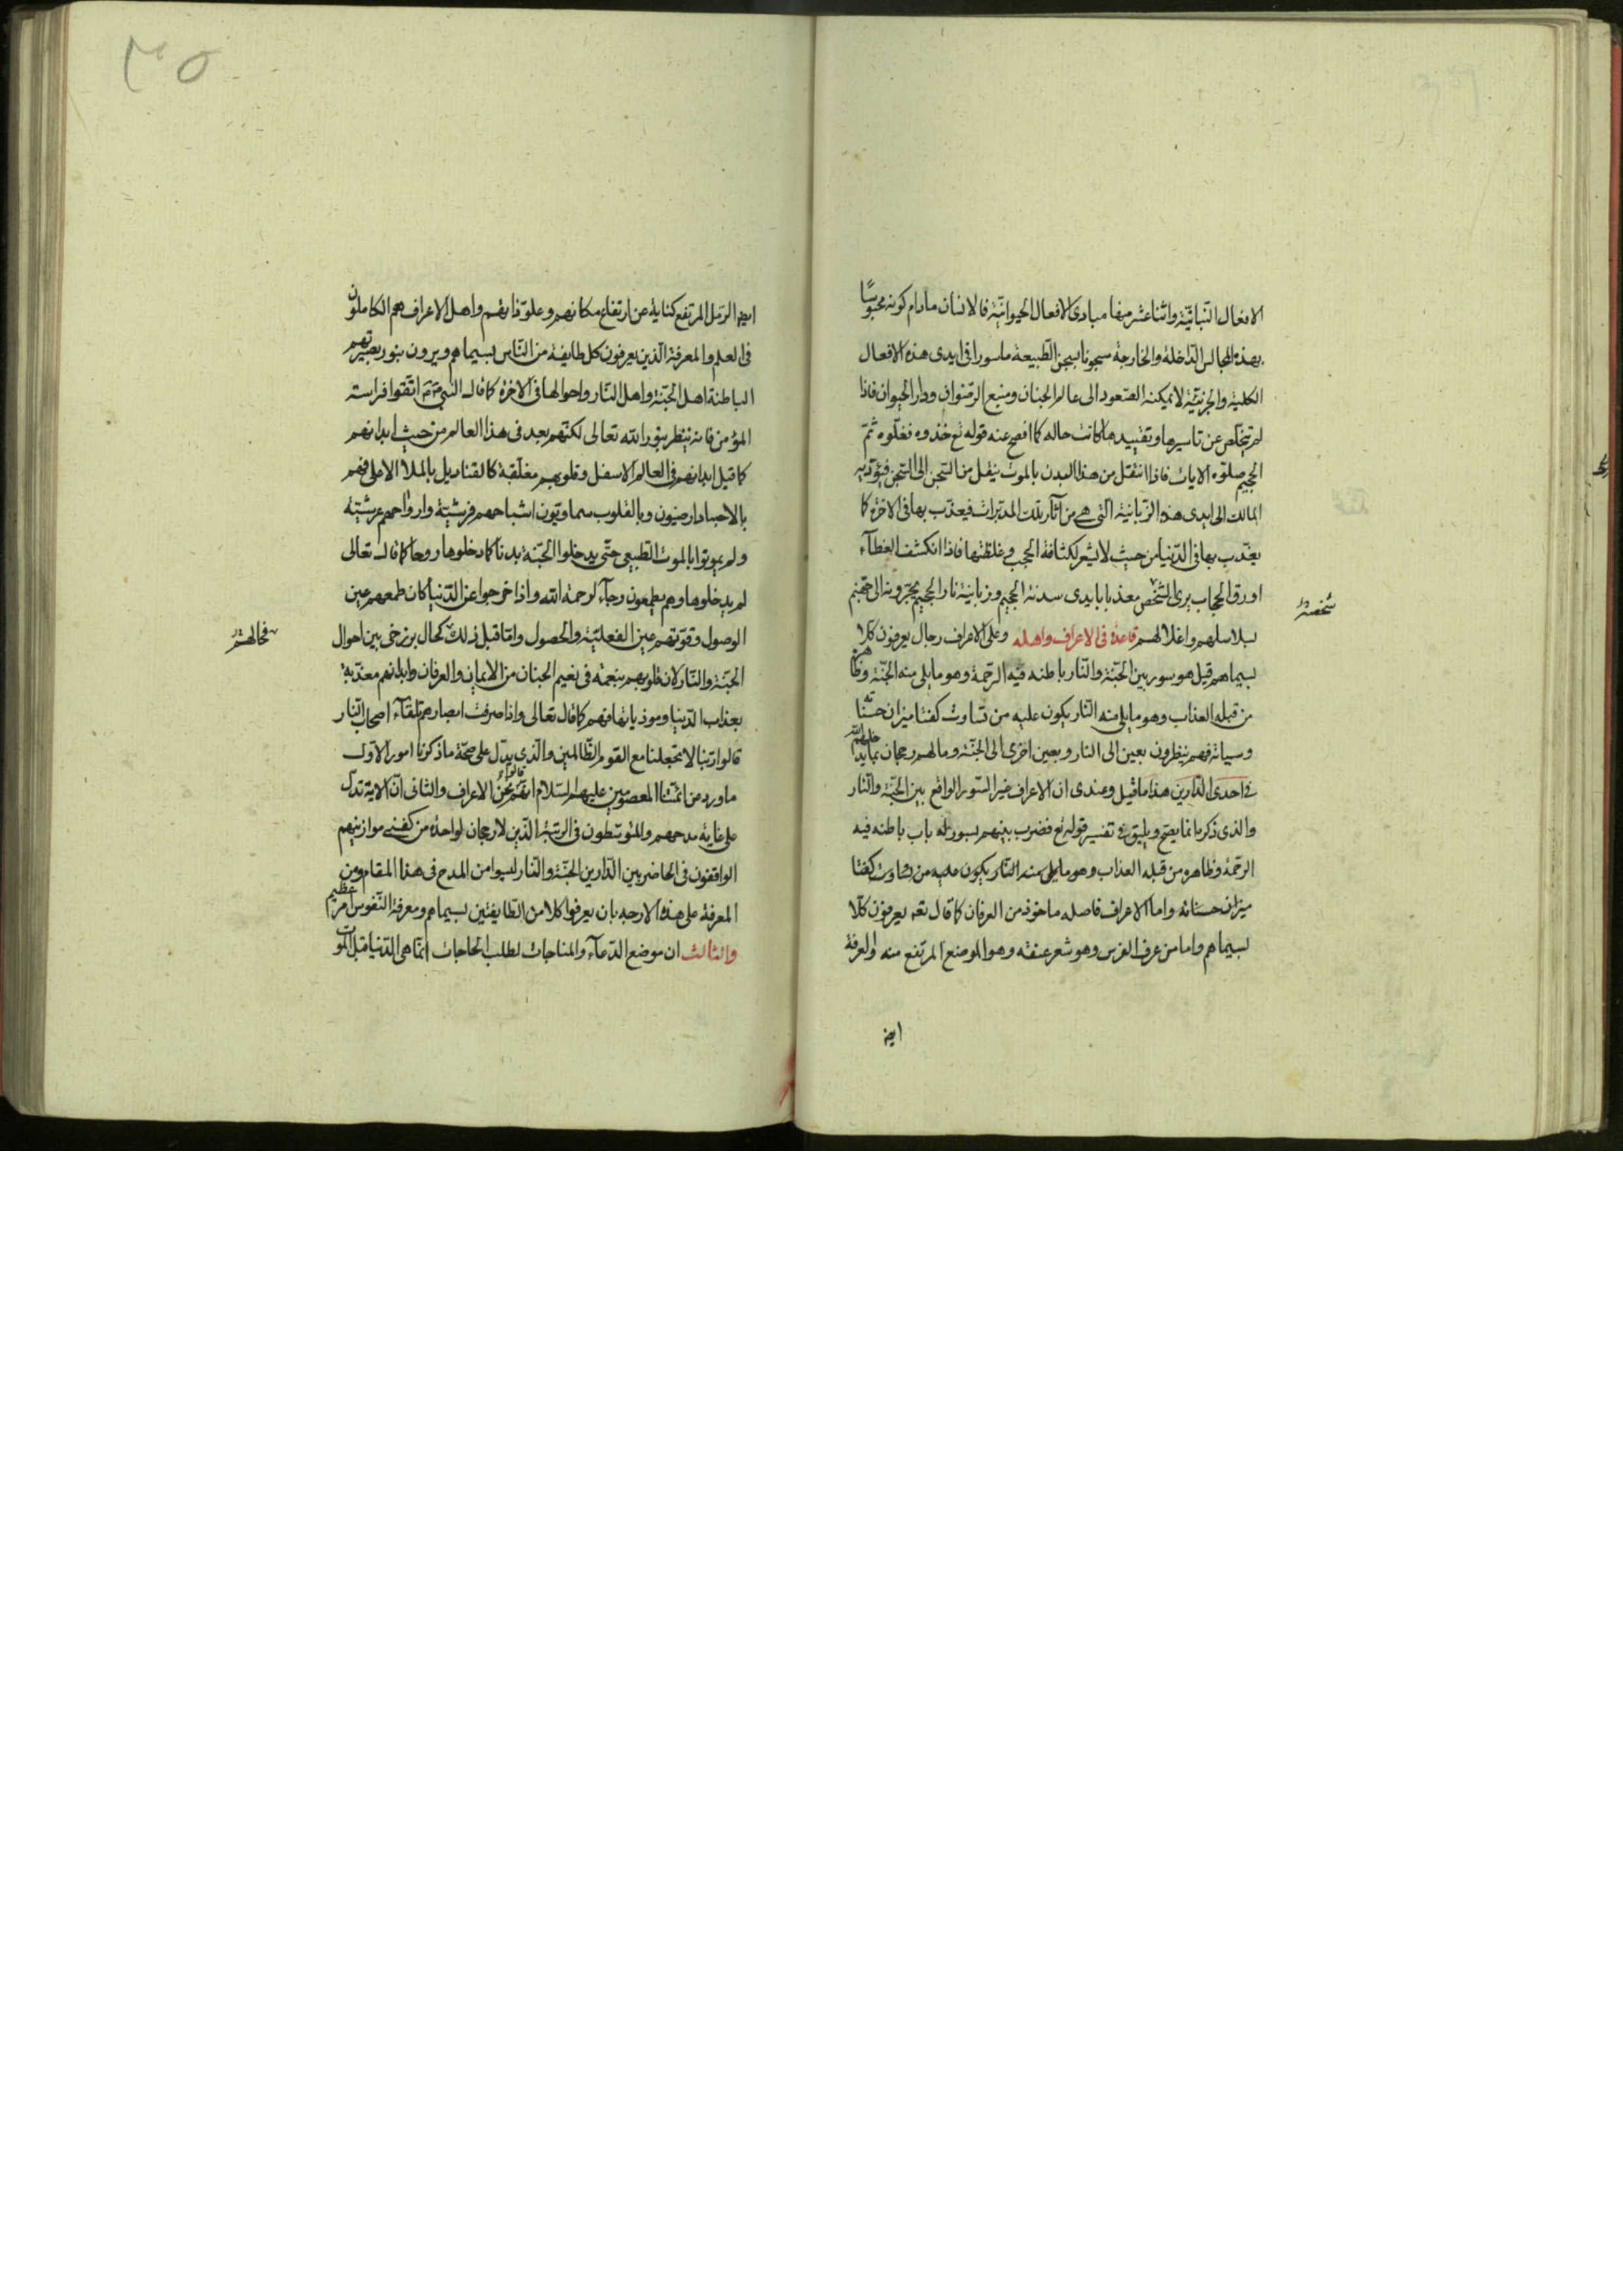 الافعال النباتيّة واثنا عشر منها مبادى الافعال الحيوانيّة فالانسان مادام كونه محبوسًا
بهذه المجالس الداخلة والخارجة سجونا بسجن الطبيعة ماسورا فى ايدى هذه الافعال
الكلية والجزئيّة لا يمكنه الصّعود الى عالم الجنان ومنبع الرّضوان ودار الحيوان فاذا
لم يتخلّص عن تاسيرها وتقييدها كانت حاله كما افصح عنه قوله تع خذوه فغلّوه ثمّ
الجحيم صلّوه الايات فاذا انتقل من هذا البدن بالموت ينفل من السّجن الى السّجن فيؤديه
المالك الى ايدى هذه الزّبانية الّتى هى من آثار تلك المدبّرات فيعذّب بها فى الاخرة كما
يعذّب بها فى الدّنيا من حيث لا يشعر لكثافة الحجب وغلظتها فاذا انكشف الغطآء
او رقّ الحجاب يرى الشّخص معذبا بايدى سدنة الجحيم وزبانية نار الجحيم يجرّونه الى جهنم
شخصه
بسلاسلهم واغلالهم قاعدة فى الاعراف واهله وعلى الاعراف رجال يعرفون كلّا
بسيماهم قيل هو سور بين الجنّة والنّار باطنه فيه الرّحمة وهو ما يلى منه الجنّة وظاهره
من قبله العذاب وهو ما يلى منه النّار يكون عليه من تساوت كفتا ميزان حسناته
وسياته فهم ينظرون بعين الى النار وبعين اخرى الى الجنّة وما لهم رجحان بما يدخلهم
فى احدى الدّارين هذا ما قيل وعندى ان الاعراف غير السّور الواقع بين الجنّة والنّار
والذى ذكر بانما يصحّ ويليق فى تفسير قوله تع فضرب بينهم بسور له باب باطنه فيه
الرّحمة وظاهره من قبله العذاب وهو ما يلى منه النّار يكون عليه من تساوت كفتا
ميزان حسناته واما الاعراف فاصله ماخوذ من العرفان كما قال تعه يعرفون كلّا
بسيماهم واما من عرف الفرس وهو شعر عنقه وهو الموضع المرتفع منه والعرفة
ايضا
٣٥
ايضا الرّمل المرتفع كناية عن ارتفاع مكانهم وعلوّ ذاتهم واهل الاعراف هم الكاملون
فى العلم والمعرفة الّذين يعرفون كل طايفة من النّاس بسيماهم ويرون بنور بصيرتهم
الباطنة اهل الجنّة واهل النّار واحوالها فى الاخرة كما قال النبي صم اتّقوا فراسة
المؤمن فانه ينظر بنور الله تعالى لكنّهم بعد فى هذا العالم من حيث ابدانهم
كما قيل ابدانهم فى العالم الاسفل وقلوبهم معلّقة كالقناديل بالملا الاعلى فهم
بالاجساد ارضيّون وبالقلوب سماويّون اشباحهم فرشيّة وارواحهم عرشيّة
ولم يموتوا بالموت الطّبيعى حتّى يدخلوا الجنّة بدنا كما دخلوها روحا كما قال تعالى
لم يدخلوها وهم يطمعون رجآء لرحمة الله واذا خرجوا عن الدّنيا كان طمعهم عين
الوصول وقوّتهم عين الفعليّة والحصول وامّا قبل ذلك كحال برزخى بين احوال
فحالهم
الجنّة والنّار لان قلوبهم بنعمة فى نعيم الجنان من الايمان والعرفان وابدانهم معذّبة
بعذاب الدّنيا وموذياتها فهم كما قال تعالى واذا صرفت ابصارهم تلقآء اصحاب النّار
قالوا ربّنا لا تجعلنا مع القوم الظّالمين والّذى يدلّ على صحّة ما ذكرنا امور الاوّل
ما ورد من ائمّتنا المعصومين عليهم السّلام انّهم قالوا نحن الاعراف والثانى انّ الاية تدلّ
على غاية مدحهم والمتوسّطون فى الرتبة الّذين لا رجحان لواحدة من كفتى موازينهم
الواقفون فى الحاضر بين الدّارين الجنّة والنّار ليسوا من المدح فى هذا المقام ومن
المعرفة على هذه الارجه بان يعرفوا كلا من الطّايفتين بسيماهم ومعرفة النّفوس امر عظيم
والثالث ان موضع الدّعآء والمناجات لطلب الحاجات انّما هى الدّنيا قبل الموت